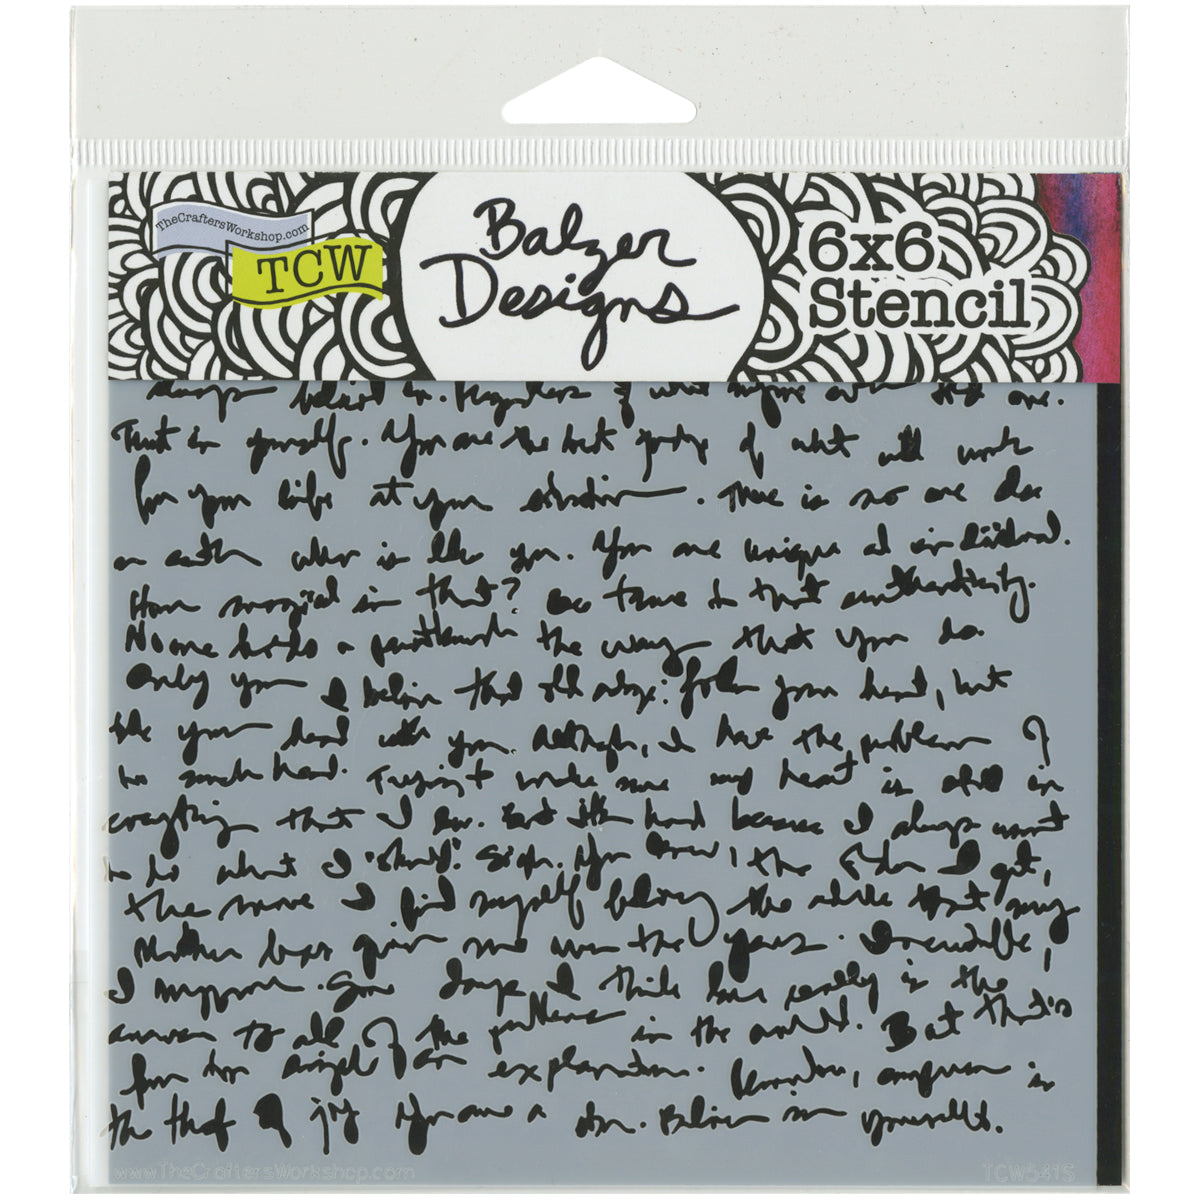 TheCraftersWorkshop.com
TCW
Balzer
Designs
6x6
Stencil
always believe in. Regardless of what anyone else one.
Trust in yourself. You are the best judge of what will work
for your life at your . There is no one else
on earth who is like you. You are unique and individual.
How magical is that? So tune to that authenticity.
No one holds a paintbrush the way that you do.
Only you I believe that old adage: follow your heart, but
take your head with you. Although, I have the problem of
too much head. Trying to make sure my heart is also in
everything that I do. But it's hard because I always want
to do what I "should". Sigh. You know, the older I get,
the more I find myself following the advice that my
Mother has given me over the years. Incredible,
I suppose. Some days I think love really is the
answer to all of the problems in the world. But that's
far too simple an explanation. Kindness, compassion is
the thief of joy You are a star. Believe in yourself.
www.TheCraftersWorkshop.com
TCW541S